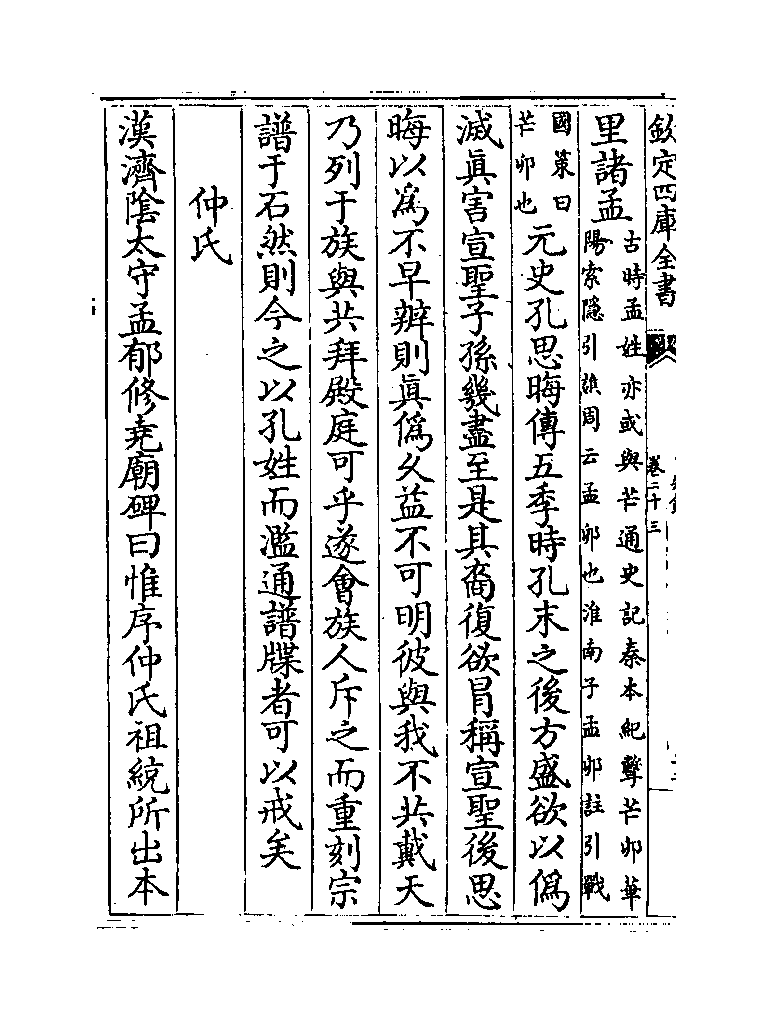 欽定四庫全書
卷二十三
里諸孟古時孟姓亦或與芒通史記秦本紀擊芒卯華
陽索隱引譙周云孟卯也淮南子孟卯註引戰
國策曰
芒卯也元史孔思晦傳五季時孔末之後方盛欲以僞
滅眞害宣聖子孫幾盡至是其裔復欲冐稱宣聖後思
晦以爲不早辨則眞僞久益不可明彼與我不共戴天
乃列于族與共拜殿庭可乎遂會族人斥之而重刻宗
譜于石然則今之以孔姓而濫通譜牒者可以戒矣
仲氏
漢濟陰太守孟郁修堯廟碑曰惟序仲氏祖統所出本